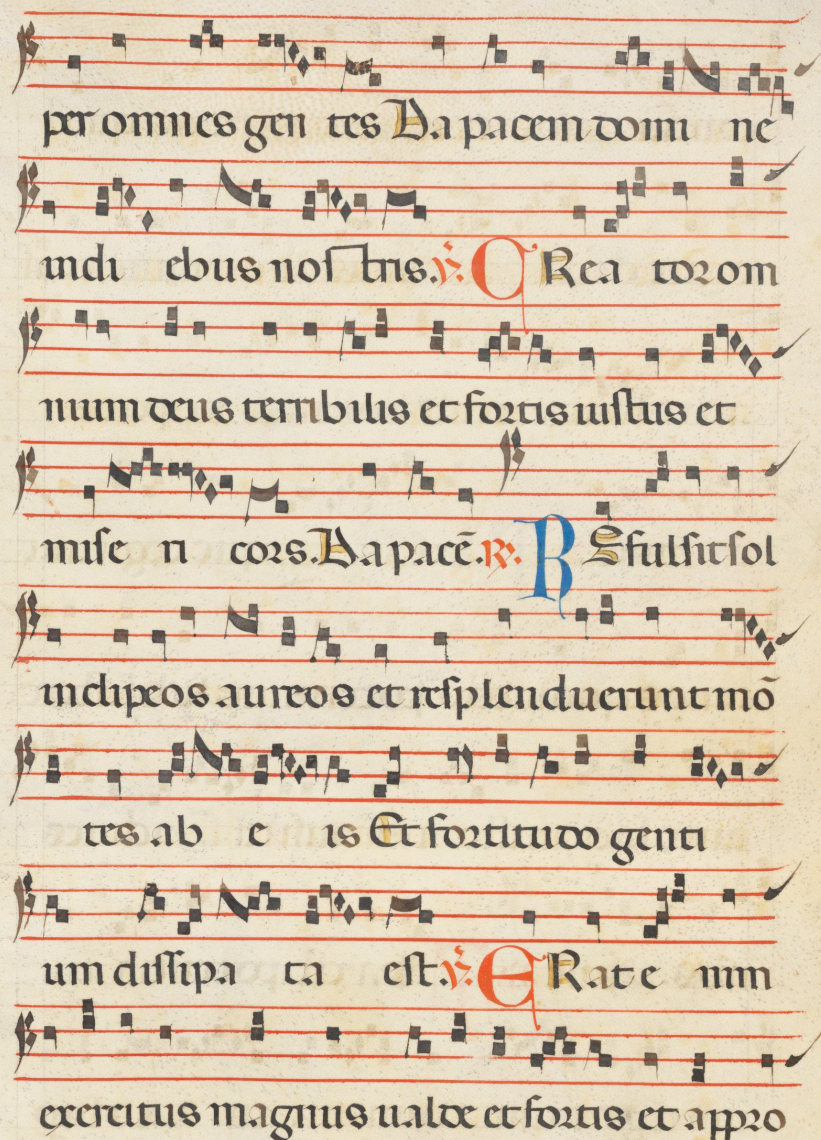 per omnes gen tes Da pacem domi ne
indi ebus nos tris. V. CRea tor om
nium deus terribilis et fortis iustus et
mise ri cors. Da pacē. R. REfulsit sol
in clipeos aureos et resplenduerunt mō
tes ab e is Et fortitudo genti
um dissipa ta est. V. ERat e nim
exercitus magnus ualde et fortis et appro